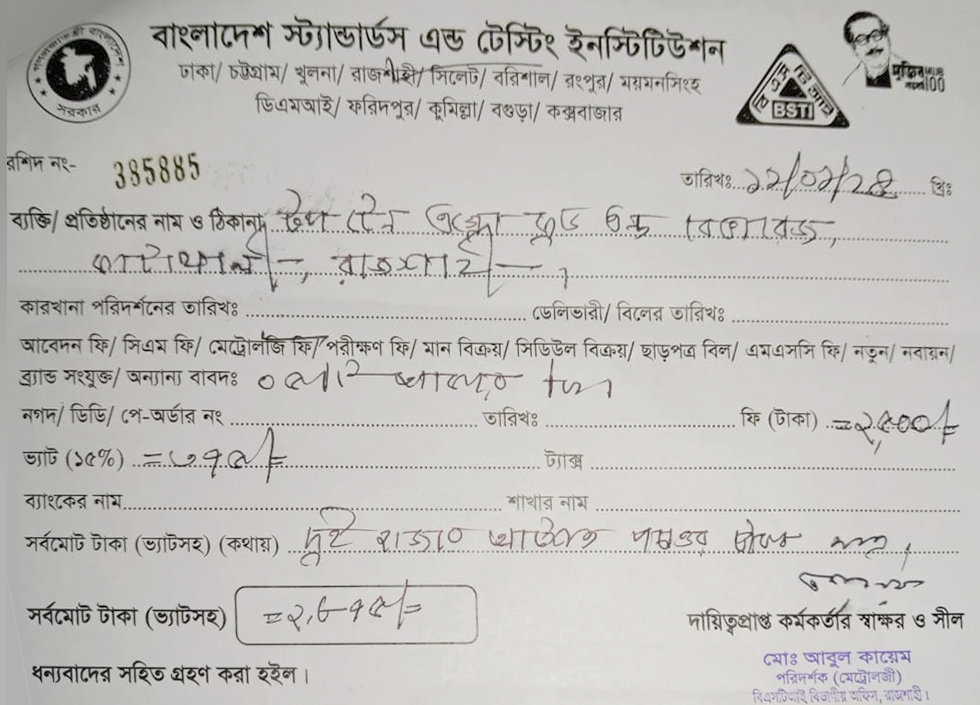 গণপ্রজাতন্ত্রী বাংলাদেশ সরকার
বাংলাদেশ স্ট্যান্ডার্ডস এন্ড টেস্টিং ইনস্টিটিউশন
ঢাকা/ চট্টগ্রাম/ খুলনা/ রাজশাহী/ সিলেট/ বরিশাল/ রংপুর/ ময়মনসিংহ
ডিএমআই/ ফরিদপুর/ কুমিল্লা/ বগুড়া/ কক্সবাজার
BSTI
মুজিব 100
রশিদ নং- 385885
তারিখঃ খ্রিঃ
ব্যক্তি/ প্রতিষ্ঠানের নাম ও ঠিকানাঃ
রাজশাহী
কারখানা পরিদর্শনের তারিখঃ ডেলিভারী/ বিলের তারিখঃ
আবেদন ফি/ সিএম ফি/ মেট্রোলজি ফি/ পরীক্ষণ ফি/ মান বিক্রয়/ সিডিউল বিক্রয়/ ছাড়পত্র বিল/ এমএসসি ফি/ নতুন/ নবায়ন/
ব্র্যান্ড সংযুক্ত/ অন্যান্য বাবদঃ
নগদ/ ডিডি/ পে-অর্ডার নং তারিখঃ ফি (টাকা) =২,৫০০/=
ভ্যাট (১৫%) =৩৭৫/= ট্যাক্স
ব্যাংকের নাম শাখার নাম
সর্বমোট টাকা (ভ্যাটসহ) (কথায়) দুই হাজার আটশত পঁচাত্তর টাকা মাত্র।
সর্বমোট টাকা (ভ্যাটসহ) =২,৮৭৫/=
দায়িত্বপ্রাপ্ত কর্মকর্তার স্বাক্ষর ও সীল
ধন্যবাদের সহিত গ্রহণ করা হইল।
মোঃ আবুল কায়েম
পরিদর্শক (মেট্রোলজী)
বিএসটিআই বিভাগীয় অফিস, রাজশাহী।